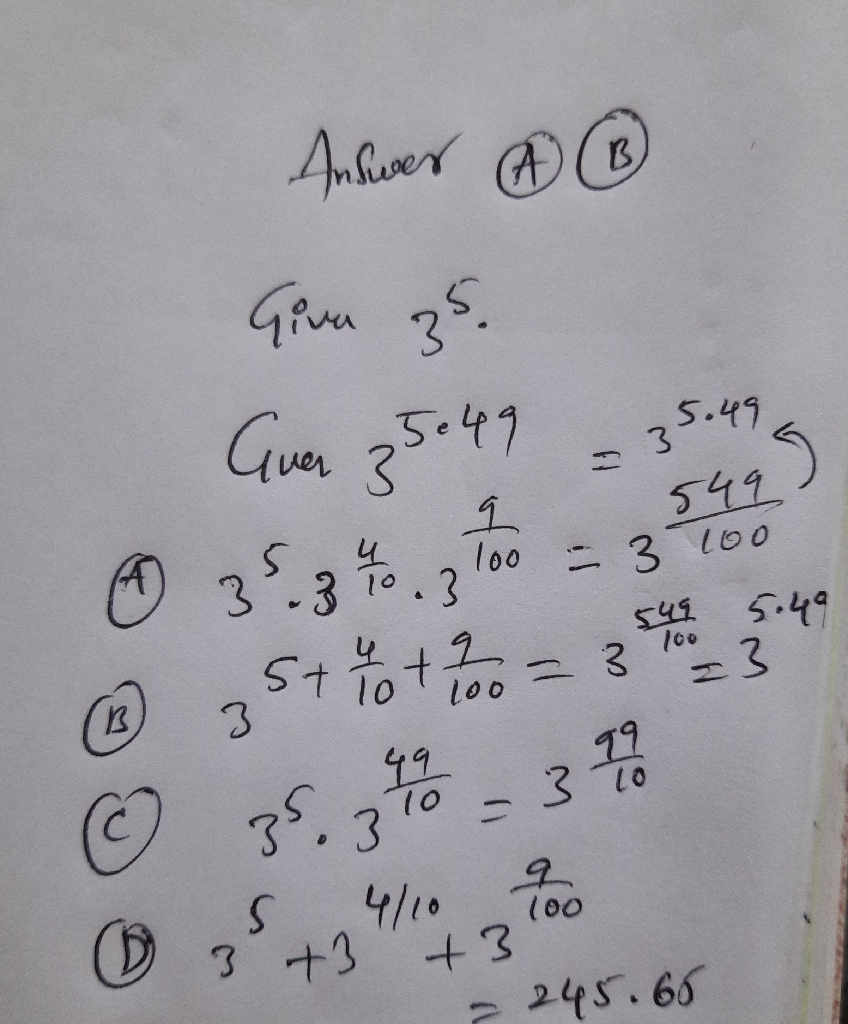 Answer Ⓐ Ⓑ
Given 3^5.
Given 3^5.49 = 3^5.49
Ⓐ 3^5 . 3^(4/10) . 3^(9/100) = 3^(549/100)
Ⓑ 3^(5+4/10+9/100) = 3^(549/100) = 3^5.49
Ⓒ 3^5 . 3^(49/10) = 3^(99/10)
Ⓓ 3^5 + 3^(4/10) + 3^(9/100)
= 245.65